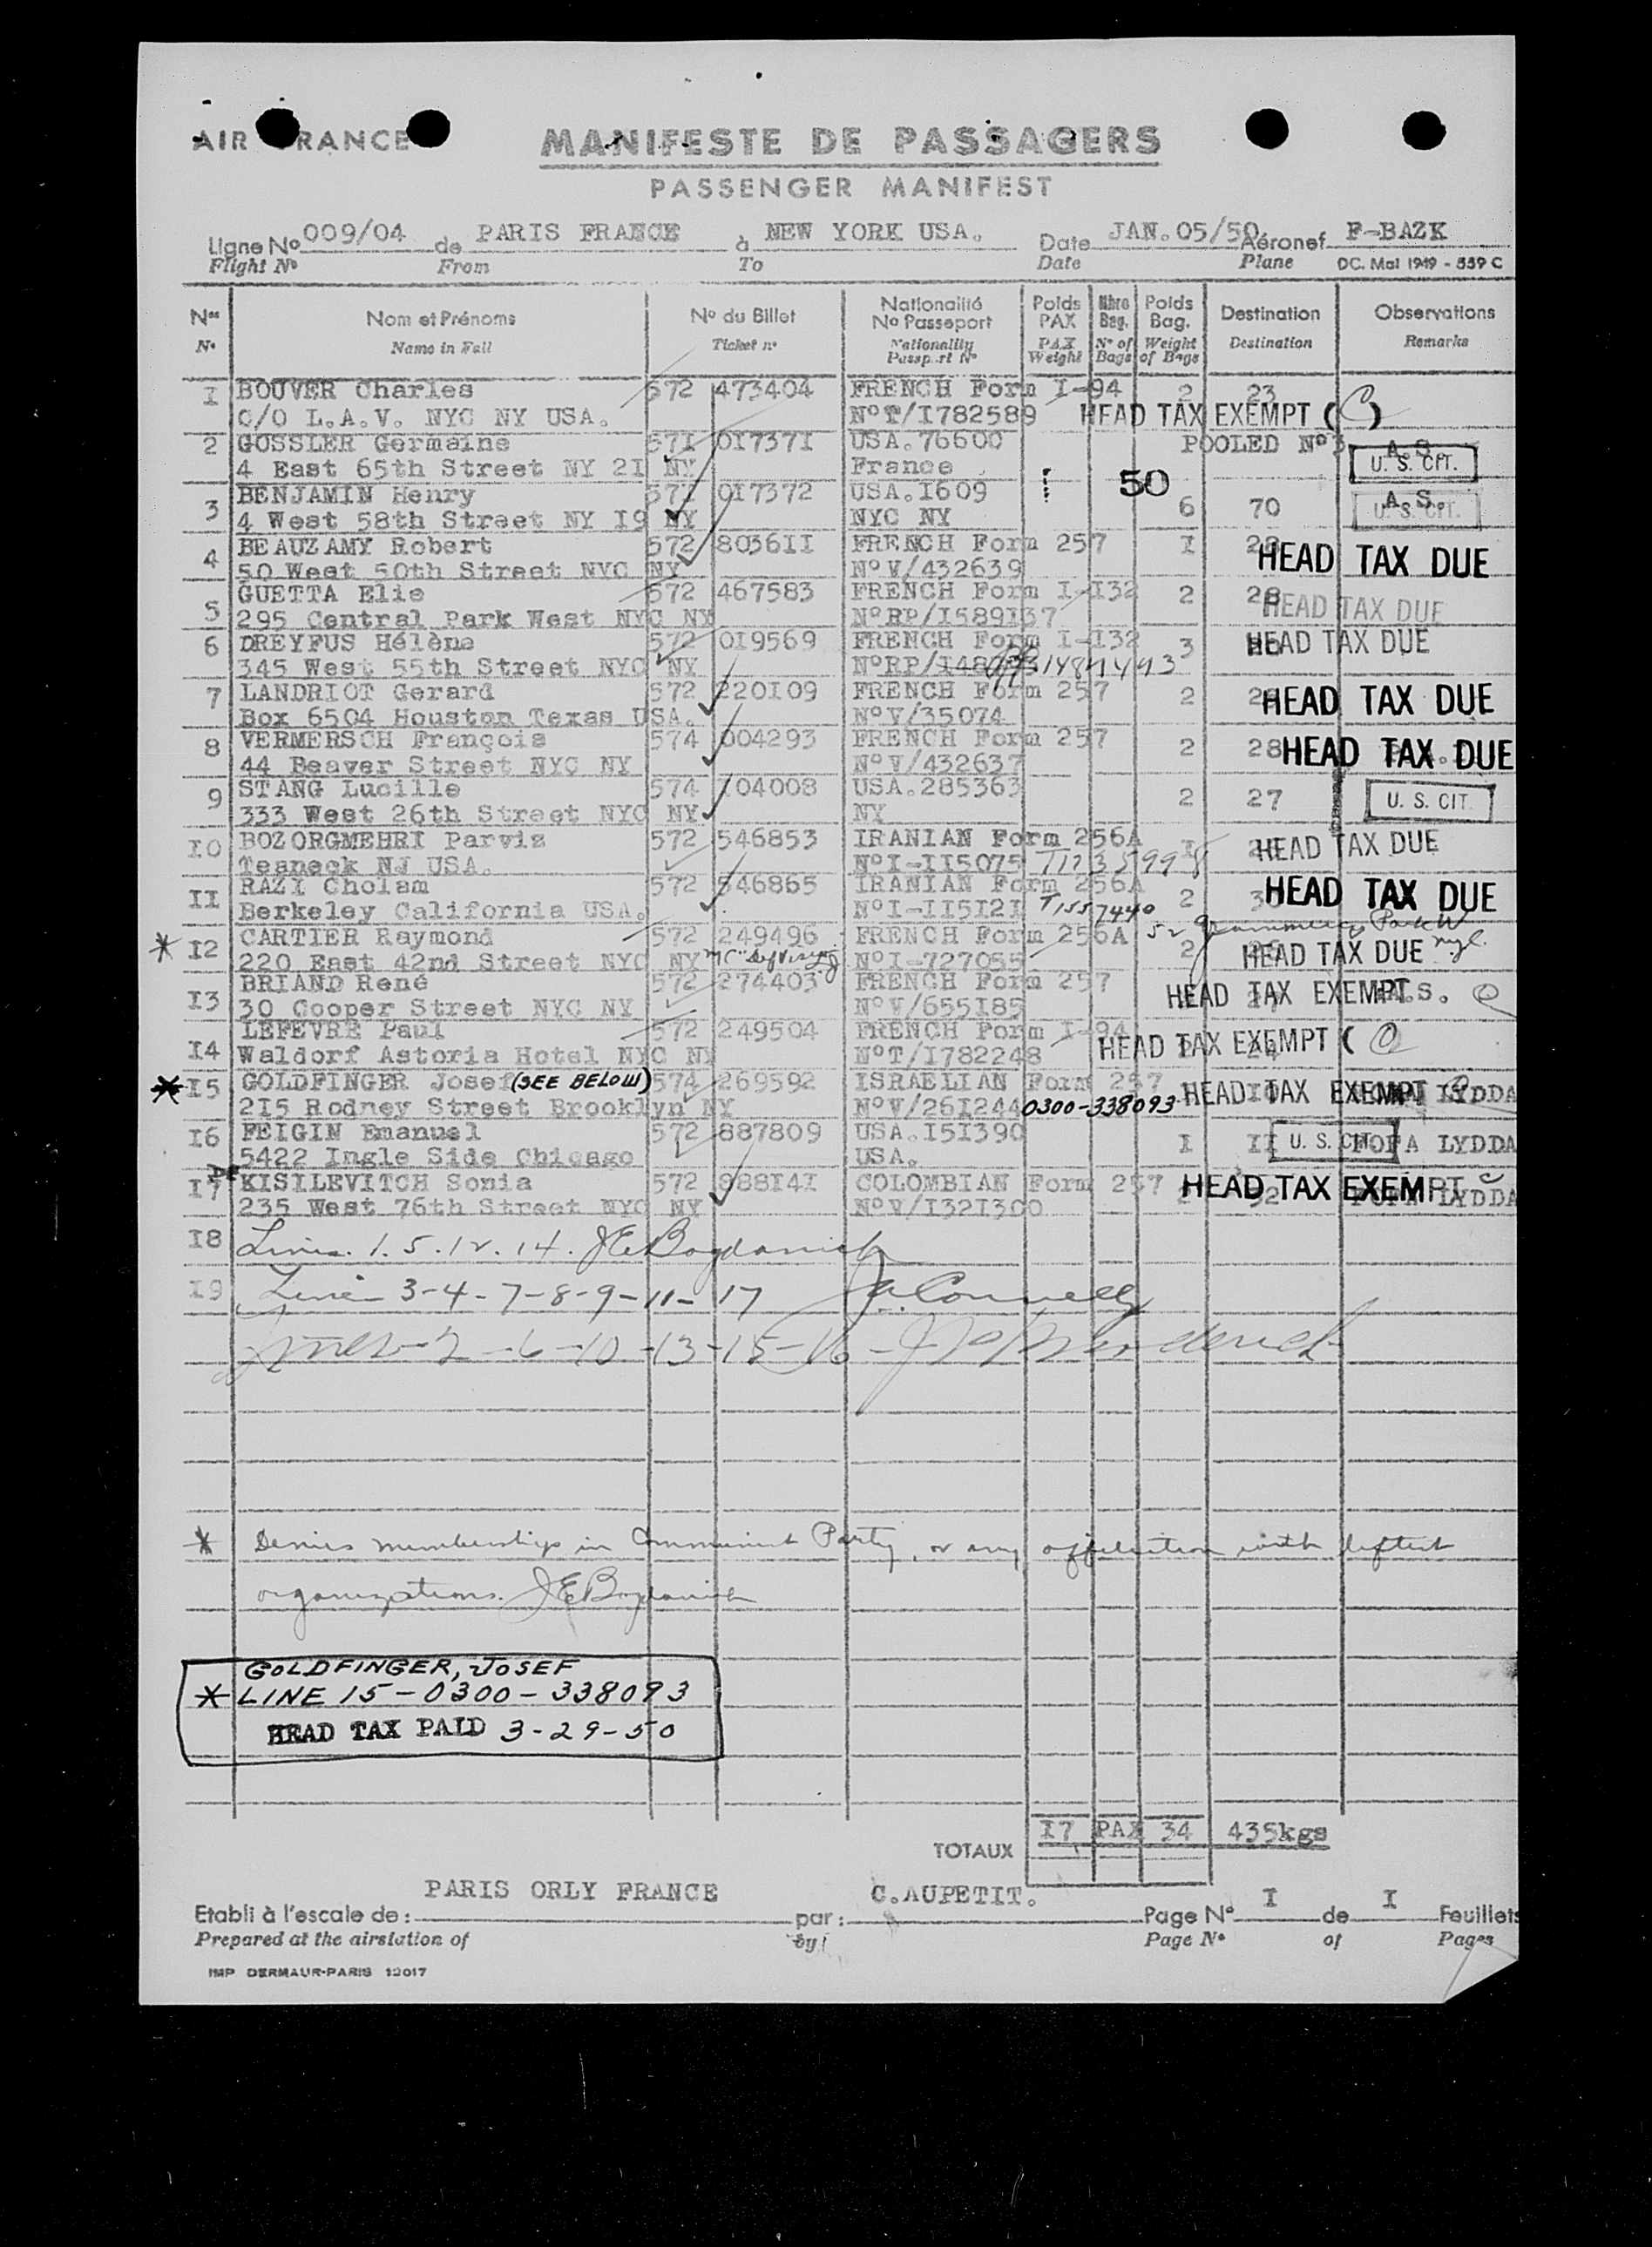 AIR FRANCE
MANIFESTE DE PASSAGERS
PASSENGER MANIFEST
Ligne No 009/04 de PARIS FRANCE à NEW YORK USA. Date JAN.05/50 Aéronef F-BAZK
Flight No From To Date Plane DC. Mal 1949 - 559 C
Nos Nom et Prénoms No du Billet Nationalité No Passeport Poids PAX Nbre Bag. Poids Bag. Destination Observations
No Name in Full Ticket no Nationality Passport No PAX Weight No of Bags Weight of Bags Destination Remarks
I BOUVER Charles 572 473404 FRENCH Form I-94 2 23
C/O L.A.V. NYC NY USA. NoT/I782589 HEAD TAX EXEMPT (C)
2 GOSSLER Germaine 57I 0I737I USA.76600 POOLED No3 A.S.
4 East 65th Street NY 2I NY France U. S. CIT.
3 BENJAMIN Henry 57I 0I7372 USA.I609 50 6 70 A.S.
4 West 58th Street NY I9 NY NYC NY U. S. CIT.
4 BEAUZAMY Robert 572 8036II FRENCH Form 257 I HEAD TAX DUE
50 West 50th Street NYC NY NoV/432639
5 GUETTA Elie 572 467583 FRENCH Form I-I32 2 28 HEAD TAX DUE
295 Central Park West NYC NY NoRP/I589I37
6 DREYFUS Hélène 572 0I9569 FRENCH Form I-I32 3 HEAD TAX DUE
345 West 55th Street NYC NY NoRP/ 1487493
7 LANDRIOT Gerard 572 220I09 FRENCH Form 257 2 HEAD TAX DUE
Box 6504 Houston Texas USA. NoV/35074
8 VERMERSCH François 574 004293 FRENCH Form 257 2 28 HEAD TAX DUE
44 Beaver Street NYC NY NoV/432637
9 STANG Lucille 574 I04008 USA.285363 2 27 U. S. CIT.
333 West 26th Street NYC NY NY
I0 BOZORGMEHRI Parviz 572 546853 IRANIAN Form 256A I HEAD TAX DUE
Teaneck NJ USA. NoI-II5075 T1735998
II RAZI Cholam 572 546865 IRANIAN Form 256A 2 HEAD TAX DUE
Berkeley California USA. NoI-II5I2I T1557440
* I2 CARTIER Raymond 572 249496 FRENCH Form 256A 52 Grammercy Park W
220 East 42nd Street NYC NY NoI-727055 2 HEAD TAX DUE
I3 BRIAND René 572 274403 FRENCH Form 257 HEAD TAX EXEMPT A.S.
30 Cooper Street NYC NY NoV/655I85
I4 LEFEVRE Paul 572 249504 FRENCH Form I-94 HEAD TAX EXEMPT (C
Waldorf Astoria Hotel NYC NY NoT/I782248
* I5 GOLDFINGER Josef (SEE BELOW) 574 269592 ISRAELIAN Form 257 HEAD TAX EXEMPT LYDDA
2I5 Rodney Street Brooklyn NY NoV/26I244 0300-338093
I6 FEIGIN Emanuel 572 887809 USA.I5I390 I II U. S. CIT. FOPA LYDDA
5422 Ingle Side Chicago USA.
I7 KISILEVITCH Sonia 572 888I4I COLOMBIAN Form 257 HEAD TAX EXEMPT LYDDA
235 West 76th Street NYC NY NoV/I32I300
I8 Lines. 1. 5. 12. 14. JEBogdanich
I9 Line 3-4-7-8-9-11-17 Connelly
Lines-2-6-10-13-15-16
* Denies membership in Communist Party, or any affiliation with leftist
organizations. JEBogdanich
GOLDFINGER, JOSEF
* LINE 15-0300-338093
HEAD TAX PAID 3-29-50
TOTAUX I7 PAX 34 435kgs
Etabli à l'escale de: PARIS ORLY FRANCE par: C.AUPETIT. Page No I de I Feuillets
Prepared at the airstation of by: Page No of Pages
IMP DERMAUR-PARIS 12017